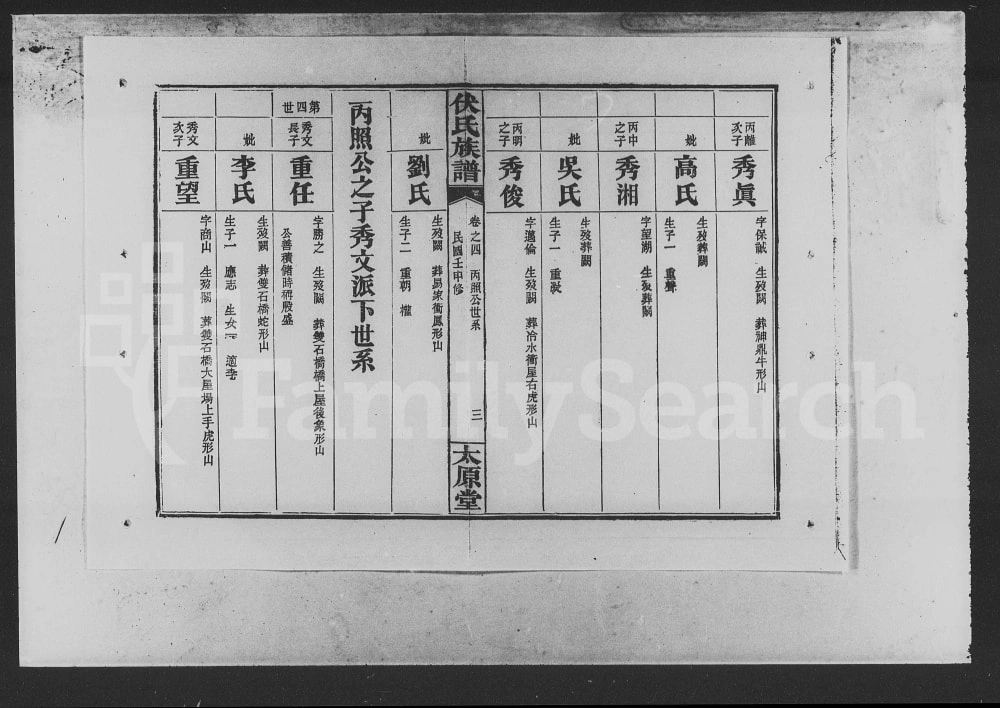 丙離次子
秀眞
字保誠 生歿闕 葬神鼎牛形山
妣
高氏
生歿葬闕
生子一 重聲
丙申之子
秀湘
字望湖 生歿葬闕
妣
吳氏
生歿葬闕
生子一 重
丙明之子
秀俊
字邁倫 生歿闕 葬冷水衝屋右虎形山
伏氏族譜
卷之四 丙照公世系
民國壬申修
三
太原堂
妣
劉氏
生歿闕 葬易家衝鳳形山
生子二 重朝 權
丙照公之子秀文派下世系
第四世
秀文長子
重任
字勝之 生歿闕 葬雙石橋橋上屋後象形山
公善積儲時稱殷盛
妣
李氏
生歿闕 葬雙石橋蛇形山
生子一 應志 生女一 適李
秀文次子
重望
字商山 生歿闕 葬雙石橋大屋場上手虎形山
FamilySearch